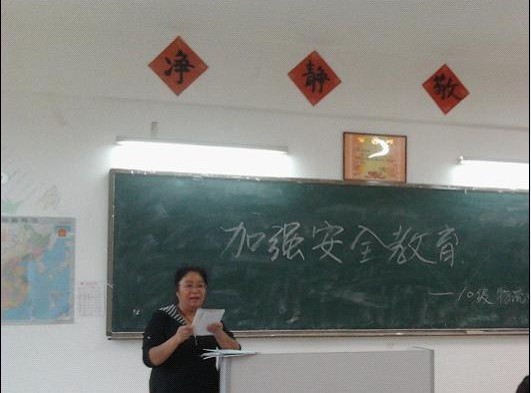 净 静 敬
加强安全教育
—10级 物流